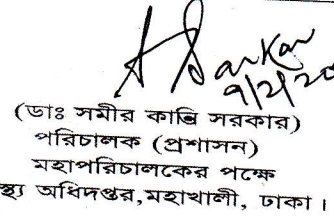 A Sarkar
(ডাঃ সমীর কান্তি সরকার)
পরিচালক (প্রশাসন)
মহাপরিচালকের পক্ষে
স্থ্য অধিদপ্তর,মহাখালী, ঢাকা।